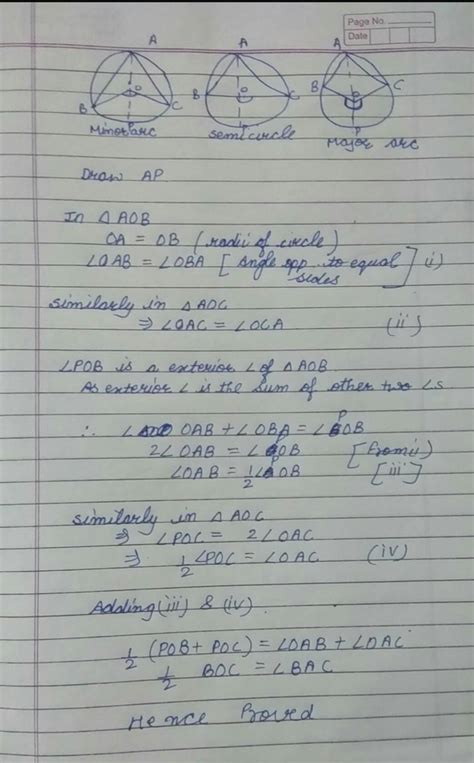 Page No.
Date
A A A
B O C B O C B O C
P P
Minor arc semicircle Major arc
Draw AP
In △ AOB
OA = OB (radii of circle)
∠OAB = ∠OBA [Angle opp. to equal sides] (i)
similarly in △AOC
⇒ ∠OAC = ∠OCA (ii)
∠POB is a exterior ∠ of △AOB
As exterior ∠ is the sum of other two ∠s
∴ ∠ OAB + ∠OBA = ∠POB
2∠OAB = ∠POB [from i]
∠OAB = 1/2 ∠POB [iii]
similarly in △ AOC
⇒ ∠POC = 2∠OAC
⇒ 1/2 ∠POC = ∠OAC (iv)
Adding (iii) & (iv)
1/2 (POB + POC) = ∠OAB + ∠OAC
1/2 BOC = ∠BAC
Hence Proved